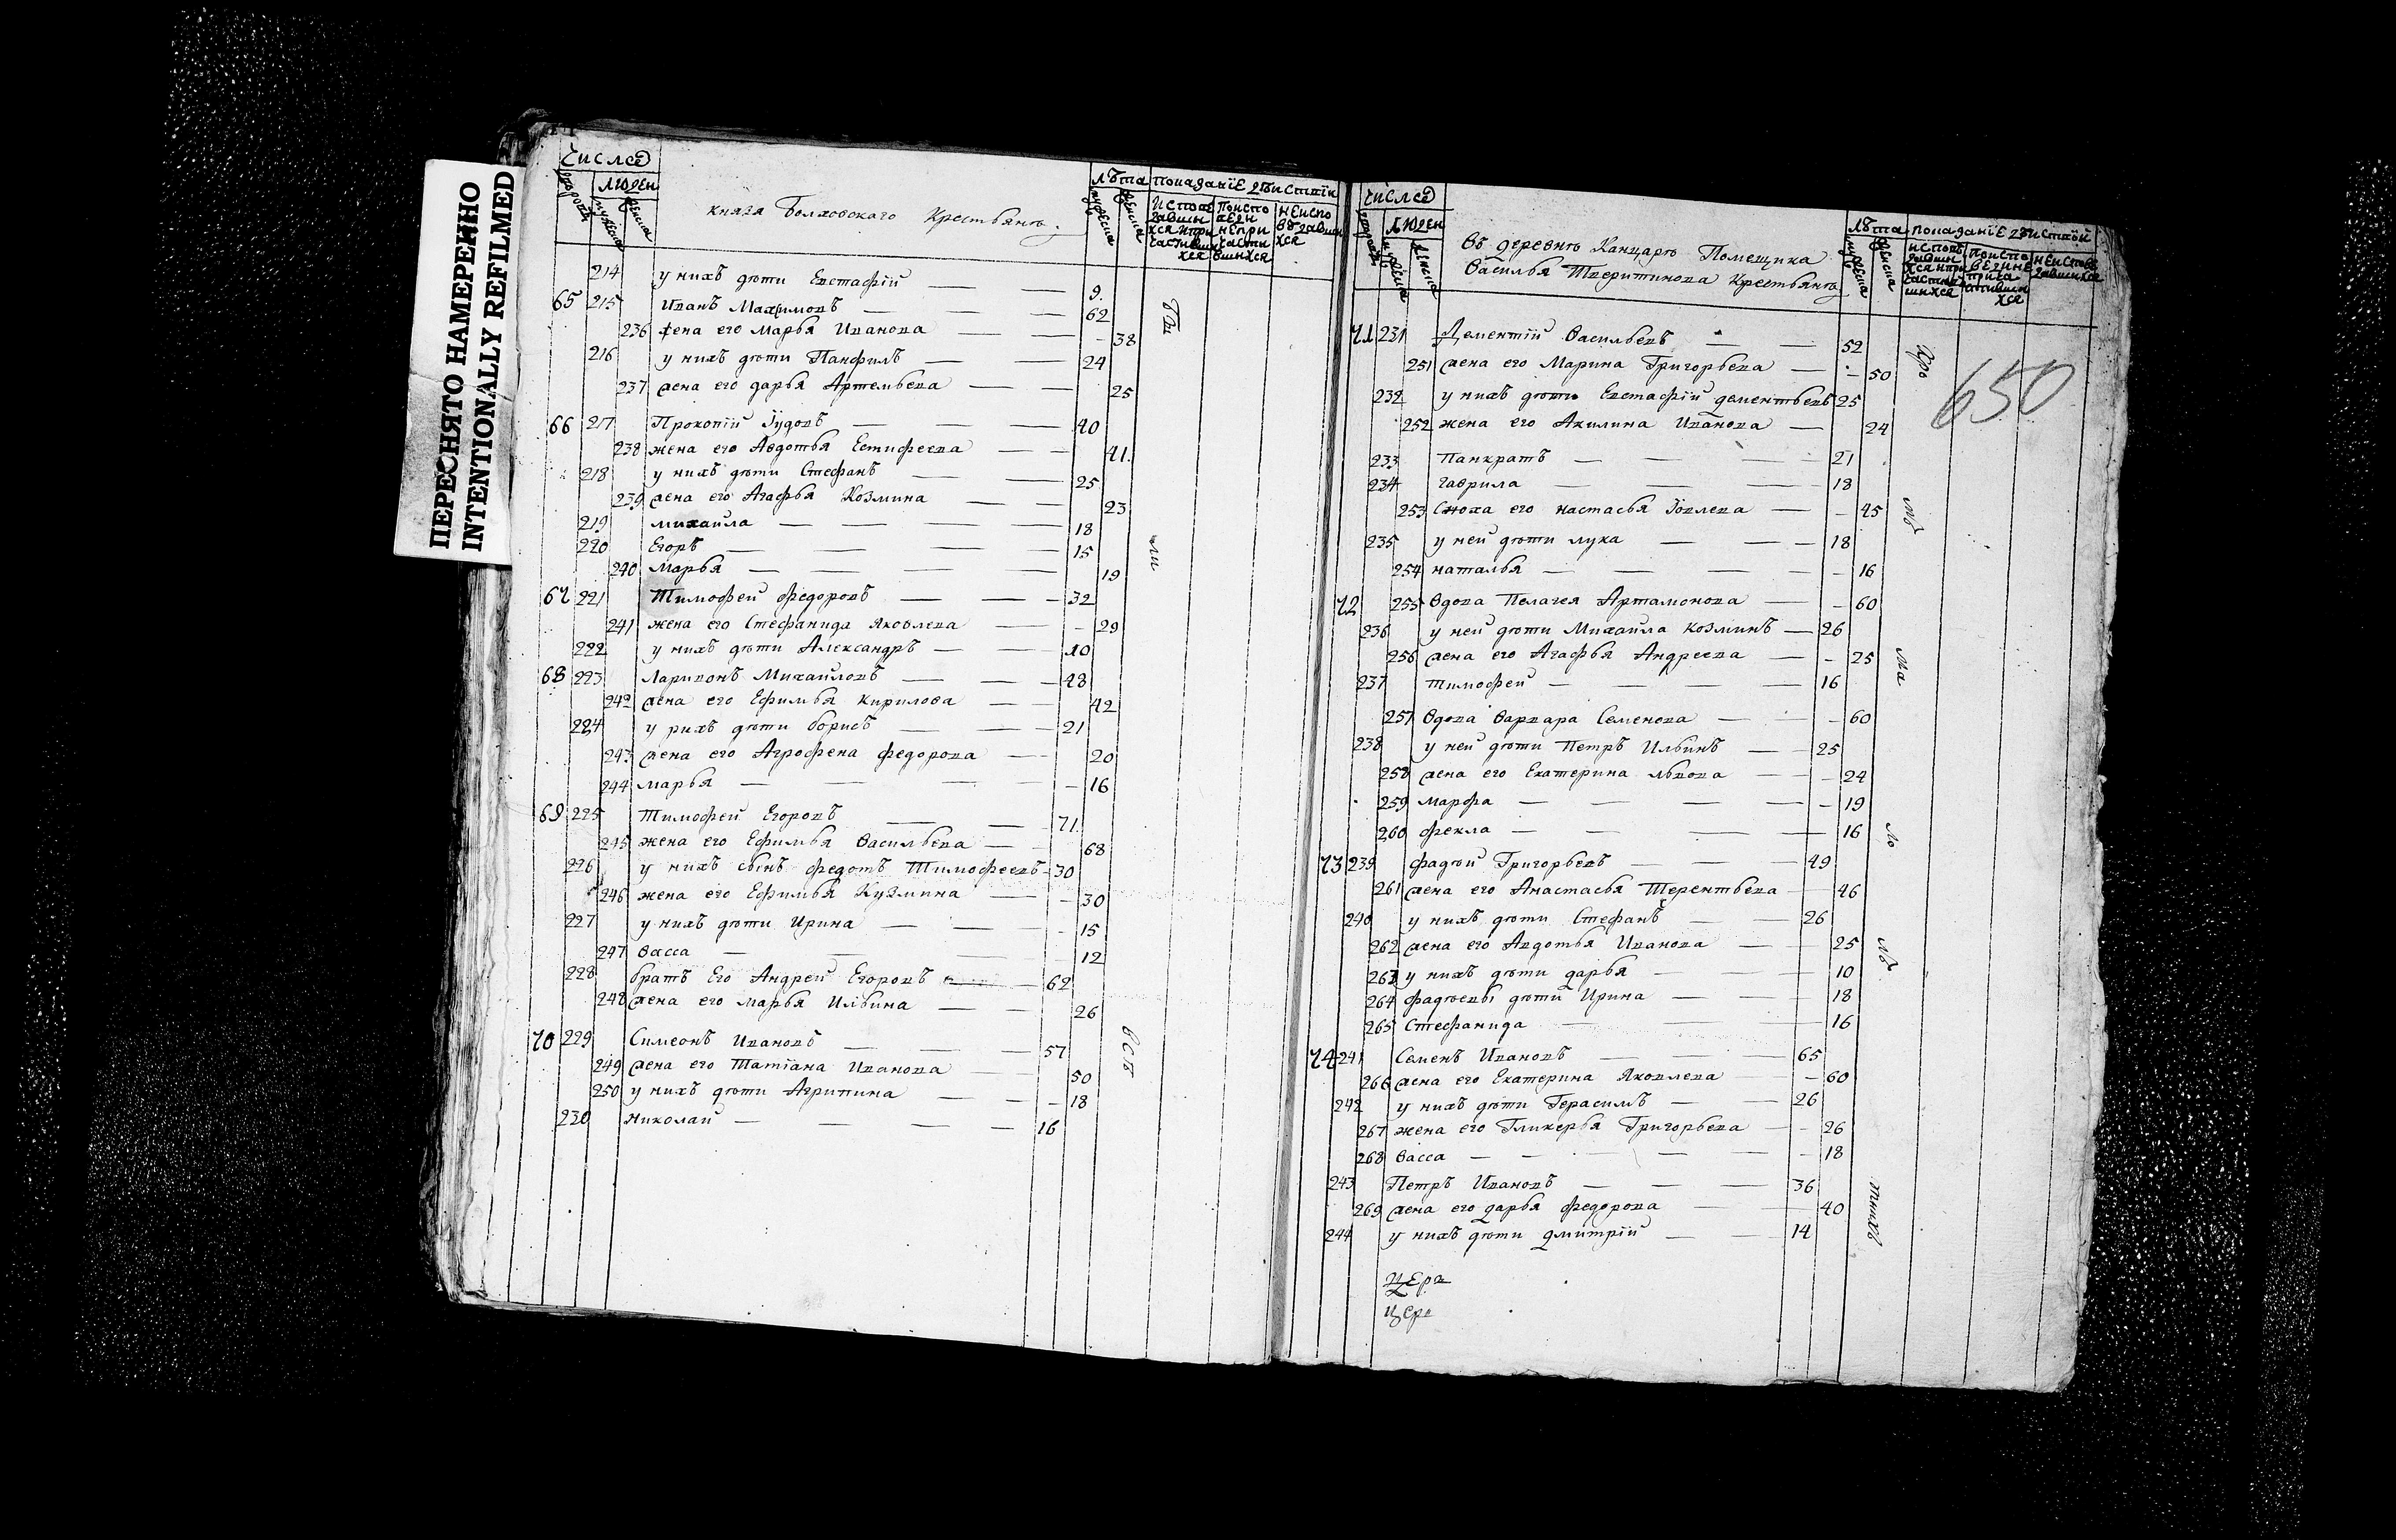 ПЕРЕСНЯТО НАМЕРЕННО
INTENTIONALLY REFILMED
Число
людей
лѣта показанїе дѣиствїи
Князя Болховскаго Крестьянъ
214 у нихъ дѣти Евстафїй 9
65 215 Иванъ Маѯимовъ 62
236 жена его Марья Иванова 38
216 у нихъ дѣти Панфилъ 24
237 жена его дарья Артемьева 25
66 217 Прокопїй Іудовъ 40
238 жена его Авдотья Естифеева 41
218 у нихъ дѣти Стефанъ 25
239 жена его Агафья Козмина 23
219 михаила 18
220 Егоръ 15
240 Марья 19
67 221 Тимофей федоровъ 32
241 жена его Стефанида Яковлева 29
222 у нихъ дѣти Александръ 10
68 223 Ларивонъ Михаиловъ 48
242 жена его Ефимья Кирилова 42
224 у нихъ дѣти борисъ 21
243 жена его Агрофена федорова 20
244 марья 16
69 225 Тимофей Егоровъ 71
245 жена его Ефимья Васильева 68
226 у нихъ сынъ федотъ Тимофеевъ 30
246 жена его Ефимья Кузмина 30
227 у нихъ дѣти Ирина 15
247 Васса 12
228 братъ Его Андрей Егоровъ 62
248 жена его марья Ильина 26
70 229 Симеонъ Ивановъ 57
249 жена его Татїана Иванова 50
250 у нихъ дѣти Агрипина 18
230 Николай 16
Число
людей
лѣта показанїе дѣиствїй
Въ деревнѣ Канцарѣ Помещика
Василья Тверитинова Крестьянъ
650
71 231 Дементїй Васильевъ 52
251 жена его Марина Григорьева 50
232 у нихъ дѣти Евстафїй дементьевъ 25
252 жена его Акилина Иванова 24
233 Панкратъ 21
234 гаврила 18
253 Сноха его настасья Їовлева 45
235 у ней дѣти лука 18
254 наталья 16
72 255 Вдова Пелагея Артамонова 60
236 у ней дѣти Михаила Козминъ 26
256 жена его Агафья Андреева 25
237 тимофей 16
257 Вдова Варвара Семенова 60
238 у ней дѣти Петръ Ильинъ 25
258 жена его Екатерина львова 24
259 марфа 19
260 фекла 16
73 239 фадѣй Григорьевъ 49
261 жена его Анастасья Терентьева 46
240 у нихъ дѣти Стефанъ 26
262 жена его Авдотья Иванова 25
263 у нихъ дѣти дарья 10
264 фадѣевы дѣти Ирина 18
265 Стефанида 16
74 241 Семенъ Ивановъ 65
266 жена его Екатерина Яковлева 60
242 у нихъ дѣти Герасимъ 26
267 жена его Гликерья Григорьева 26
268 Васса 18
243 Петръ Ивановъ 36
269 жена его дарья федорова 40
244 у нихъ дѣти дмитрїй 14